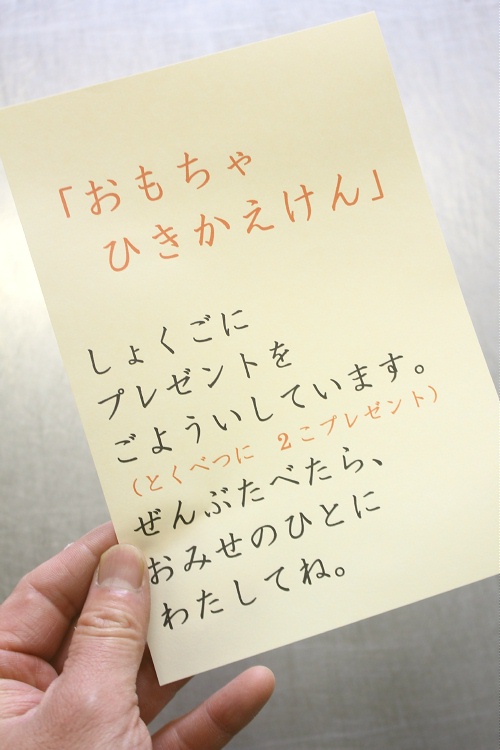 「おもちゃ
ひきかえけん」
しょくごに
プレゼントを
ごよういしています。
(とくべつに 2こプレゼント)
ぜんぶたべたら、
おみせのひとに
わたしてね。